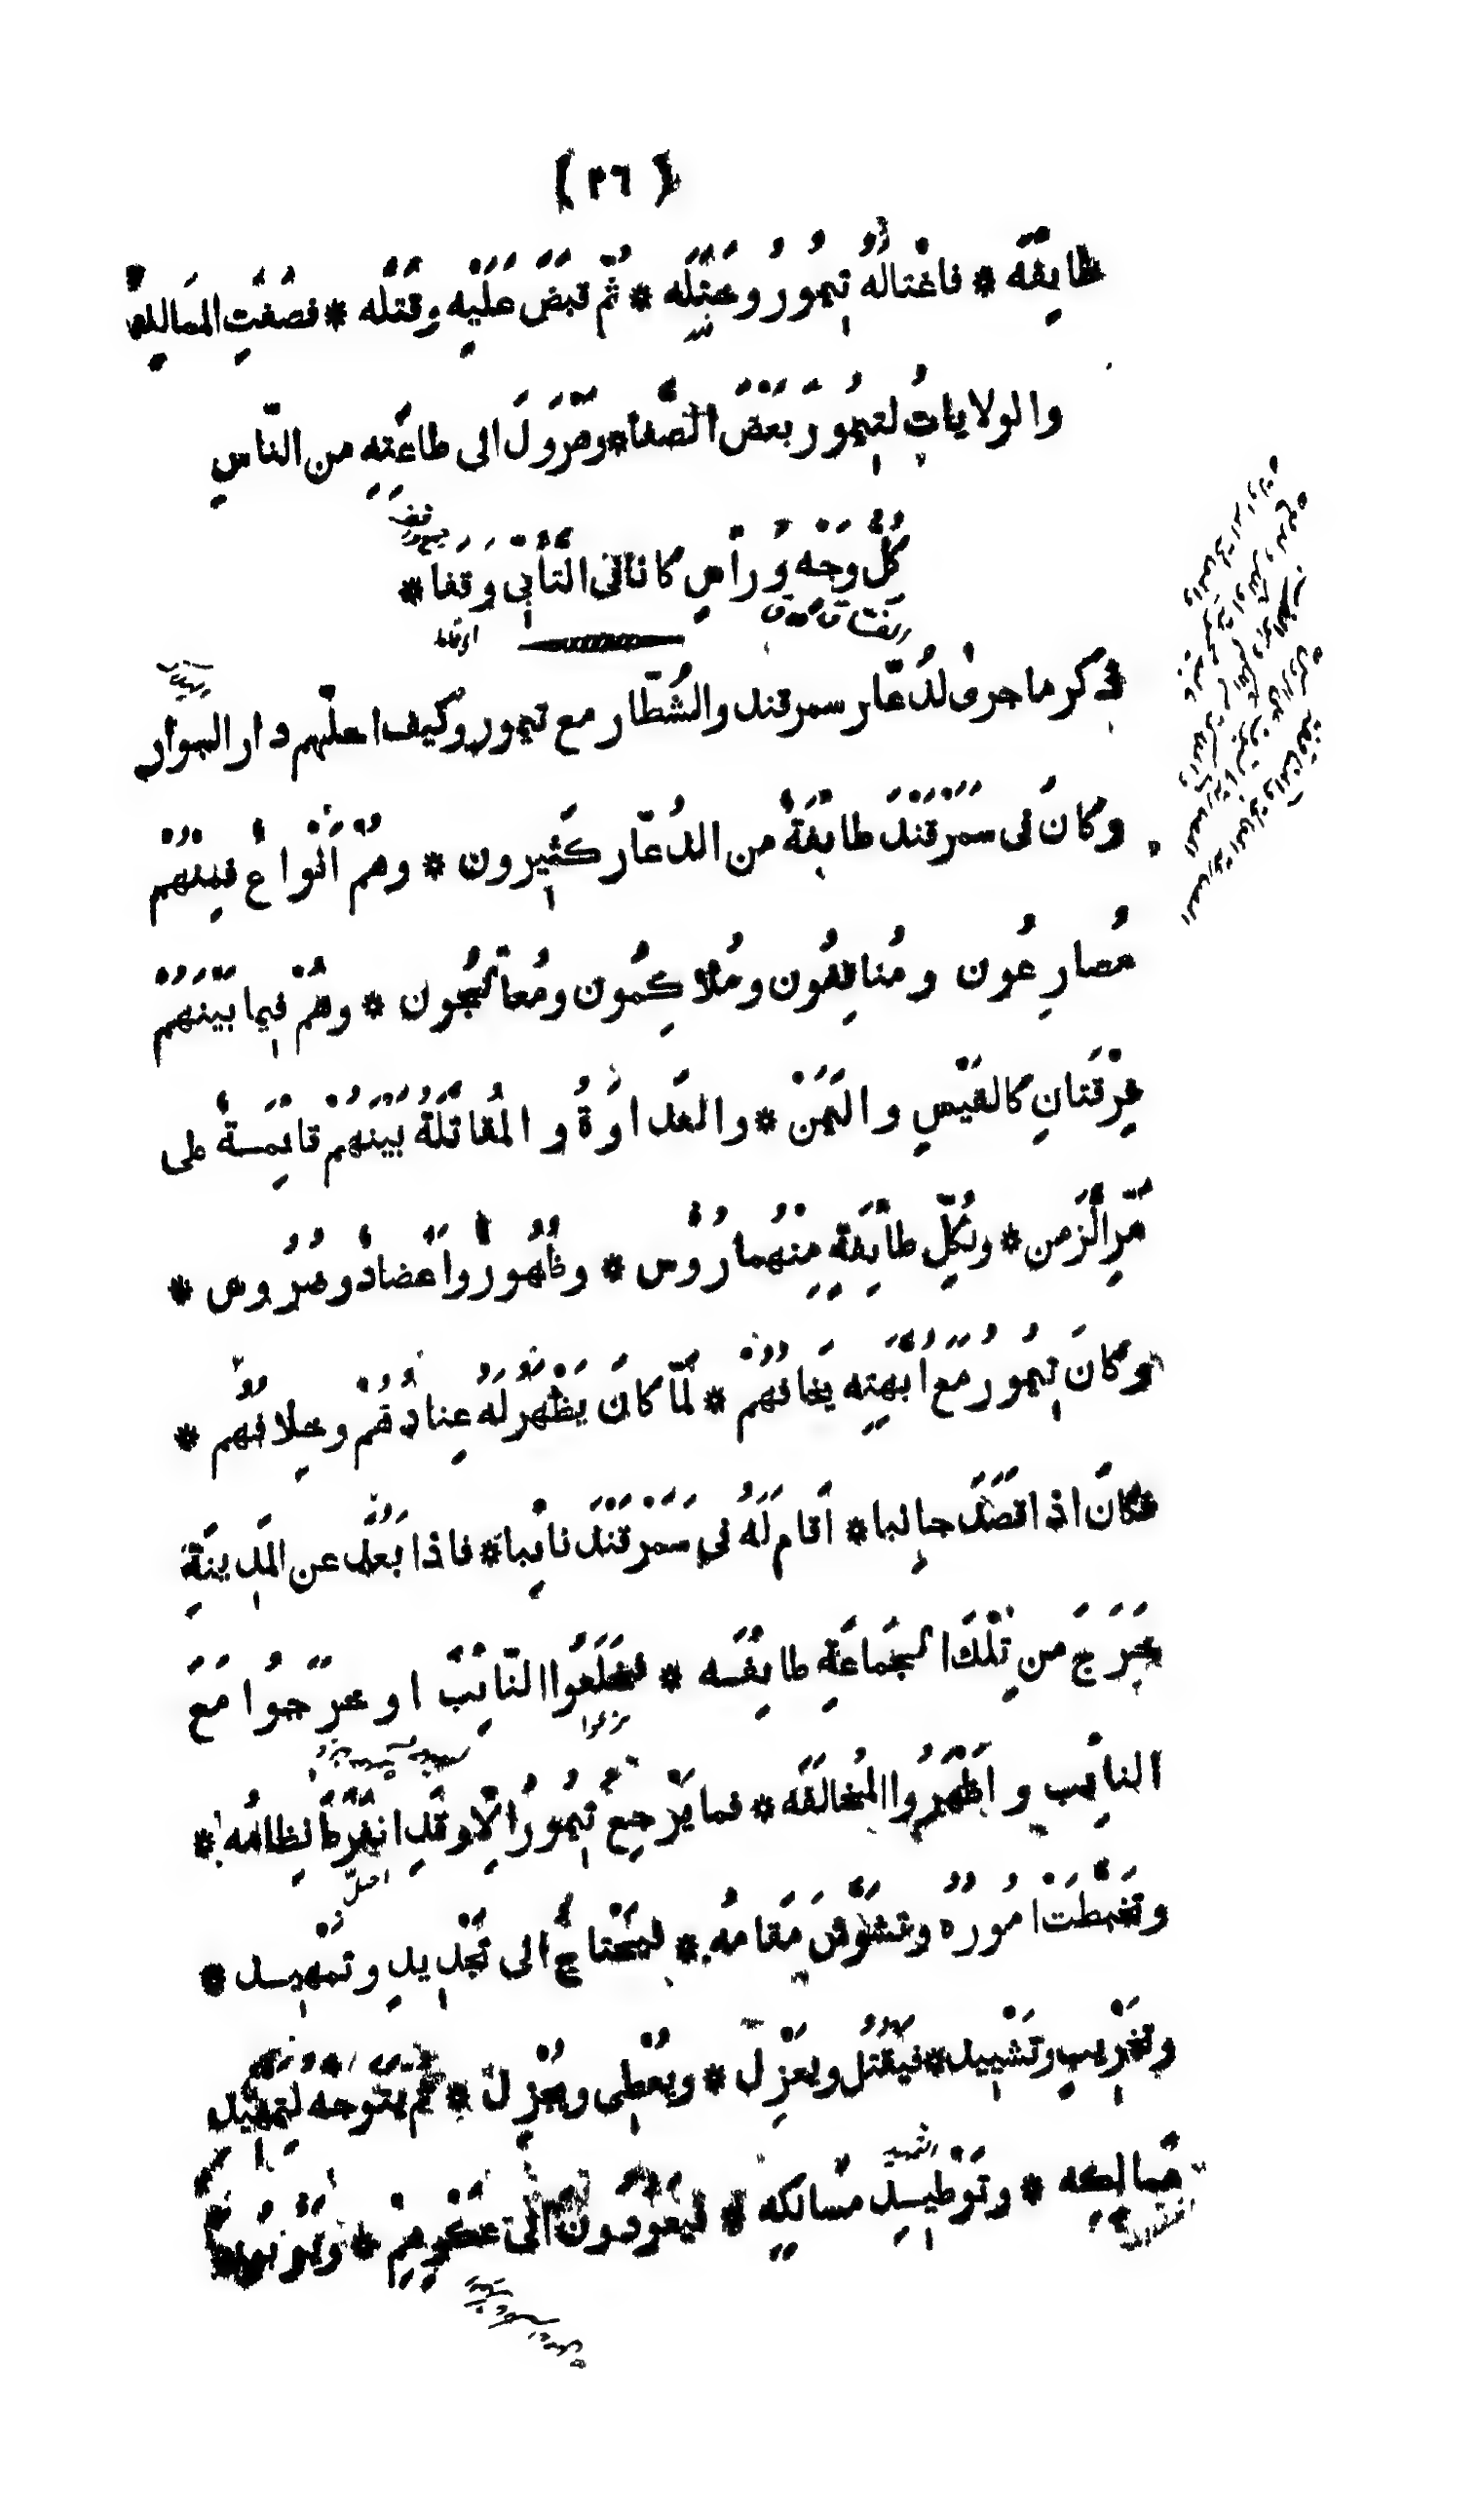 (٢٦)
طايِفَه * فاغْتالَهُ تِيمُورُ وخَتَلَه * ثُمّ قَبَضَ عَلَيْهِ وقَتَلَه * فصَفَتِ المَمَالِكُ
والولاياتُ لتِيمُورَ بَعْضَ الصَّفا * وهَرْوَلَ الى طاعَتِهِ من النّاسِ
كُلُّ وَجْهٍ وُرَأسٍ كانا في التَّأَنّي وَقَفَا *
ذكر ما جرى لدُعّار سمرقند والشُطّار مع تيمور وكيف احلّهم دار البوار
وكانَ في سَمَرْقَنْدَ طايِفَةٌ من الدُعّار كَثيِرون * وهُمْ اَنْواعٌ فمِنْهُمْ
مُصارِعُون ومُنالِفُون ومُلاكِمُون ومُعالِجُون * وهُمْ فِيما بَيْنَهُمْ
فِرْقَتانِ كالقَيْسِ واليَمَنْ * والعَداوَةُ والمُقاتَلَةُ بَيْنَهُمْ قائِمَةٌ على
مَرِّ الزَّمن * ولكُلِّ طايِفَةٍ مِنْهُما رُؤُس * وظُهُورٌ واَعْضادٌ وضُرُوس *
وكانَ تِيمُورُ مَعَ اُبَّهَتِه يَخافُهُمْ * لَمّا كانَ يَظْهَرُ لَهُ عِنادُهُمْ وخِلافُهُم *
فكانَ اذا قَصَدَ جانِبا * اَقام لَهُ في سَمَرْقَنْدَ نائِبا * فاذا بَعُدَ عن المَدِينَةِ
خَرَجَ مِن تِلْكَ الجَمَاعَةِ طايِفَه * فخَلَعُوا النّائِبَ او خرَجُوا مَعَ
النائِب واَظْهَرُوا المُخالَفَه * فما يَرْجِعُ تِيمُورُ اِلّا وقَدِ انْفَرَطَ نِظامُه *
وتَخَبَّطَتْ اُمُورُهُ وتَشَوَّشَ مَقامُه * فيَحْتاجُ الى تَجْدِيدٍ وتَمْهِيد *
وتَخْرِيبٍ وتَشْيِيد * فيَقْتُل ويَعْزِل * ويُعْطِي ويُجْزِل * ثُمَّ يَتَوَجَّهُ لتَمْهِيدِ
مَمالِكِه * وتَوْطِيدِ مَسالِكِه * فيَعُودُونَ الى عَكْرِهِمْ *